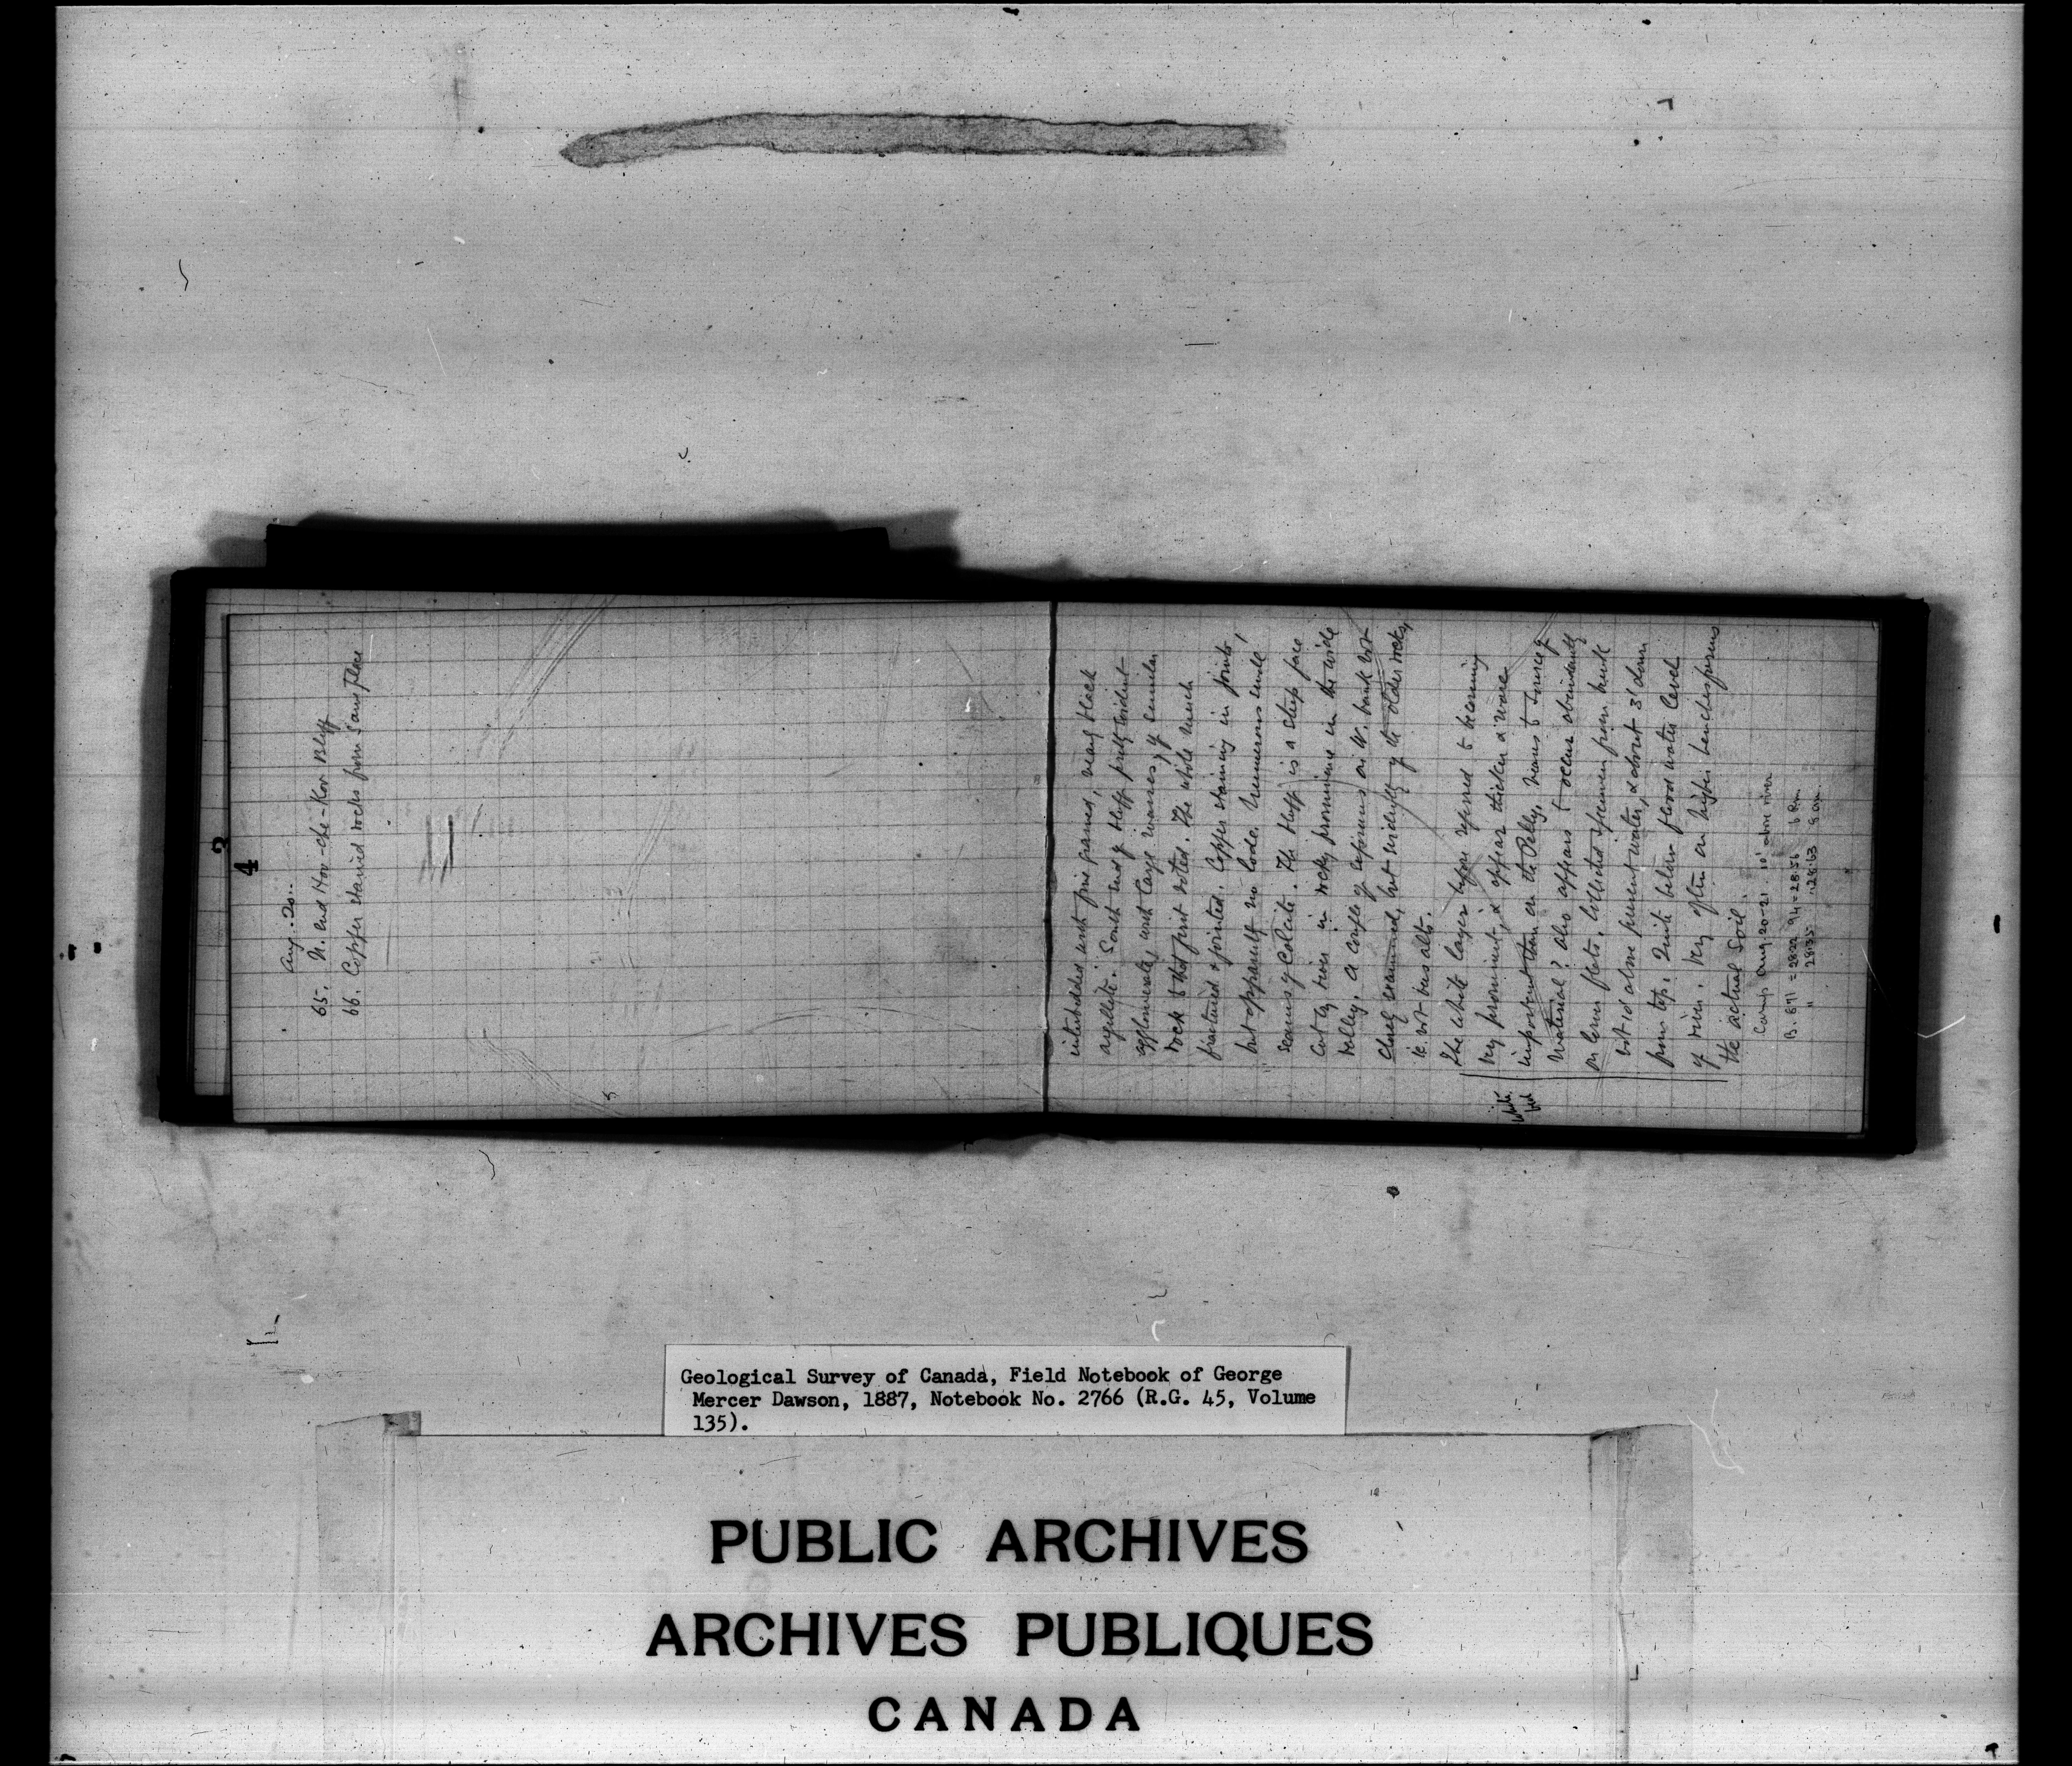 2
4
Aug. 20.
65. N. end Hoo-che-Koo Bluff
66. Copper stained rocks from Same Place
interbedded with fine grained, nearly black
argillite. South end of bluff pretty evident
agglomerate, with large masses of similar
rock to that first noted. The whole much
fractured & jointed. Copper staining in joints,
but apparently no lode. Numerous small
seams of Calcite. The bluff is a steep face
cut by river in rocky prominence in the wide
valley. A couple of exposures on W. bank not
closely examined, but evidently of the older rocks,
ie. not basalts.
The white layer before referred to becoming
very prominent, & appear thicker & more
important than on the Pelly. Means to source of
material? Also appears to occur abundantly
on low flats. Collected specimen from bank
not 10 above present water, & about 3' down
from top. Quite below flood water level
of river. Very often on higher benches forms
the actual Soil.
White
bed
Camp Aug 20-21 10' above river
B. 871 = 2822 94 = 28.56 6 P.m
" 2835 28.63 9 a.m.
Geological Survey of Canada, Field Notebook of George
Mercer Dawson, 1887, Notebook No. 2766 (R.G. 45, Volume
135).
PUBLIC ARCHIVES
ARCHIVES PUBLIQUES
CANADA